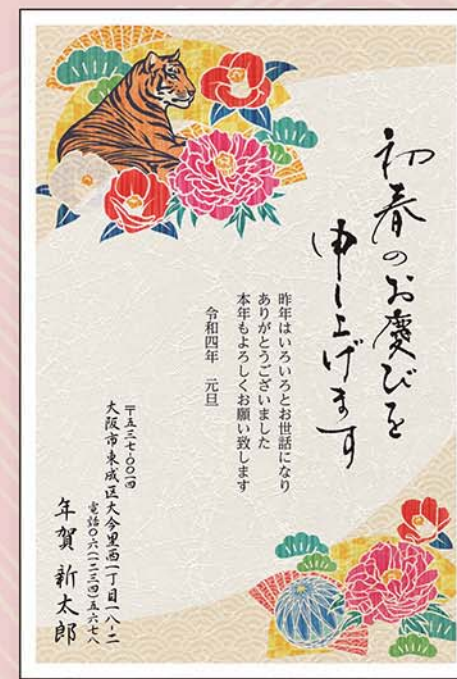 初春のお慶びを
申し上げます
昨年はいろいろとお世話になり
ありがとうございました
本年もよろしくお願い致します
令和四年 元旦
〒五三七-〇〇一四
大阪市東成区大今里西一丁目一八-二
電話〇六(一二三四)五六七八
年賀 新太郎